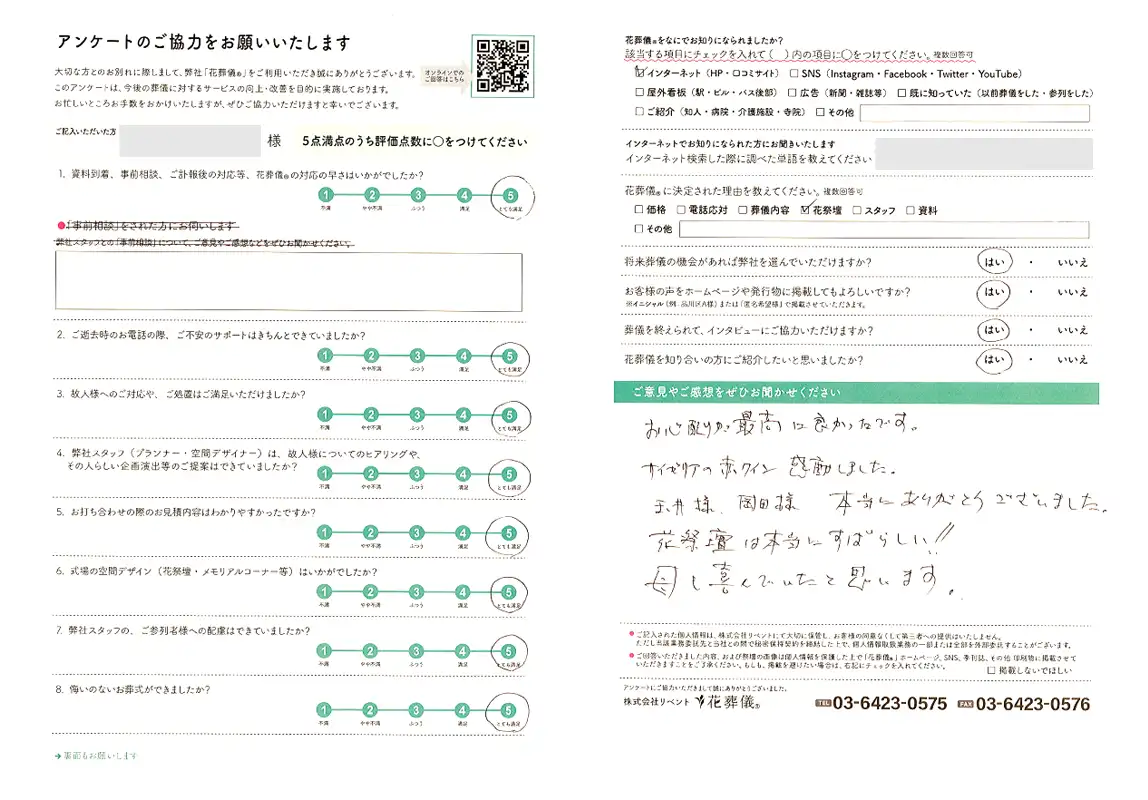 アンケートのご協力をお願いいたします
大切な方とのお別れに際しまして、弊社「花葬儀®」をご利用いただき誠にありがとうございます。
このアンケートは、今後の葬儀に対するサービスの向上・改善を目的に実施しております。
お忙しいところお手数をおかけいたしますが、ぜひご協力いただけますと幸いでございます。
オンラインでの
ご回答はこちら
ご記入いただいた方
様
5点満点のうち評価点数に○をつけてください
1. 資料到着、事前相談、ご計報後の対応等、花葬儀®の対応の早さはいかがでしたか?
1 2 3 4 5
不満 やや不満 ふつう 満足 とても満足
●「事前相談」をされた方にお伺いします
弊社スタッフとの「事前相談」について、ご意見やご感想などをぜひお聞かせください。
2. ご逝去時のお電話の際、ご不安のサポートはきちんとできていましたか?
1 2 3 4 5
不満 やや不満 ふつう 満足 とても満足
3. 故人様へのご対応や、ご処置はご満足いただけましたか?
1 2 3 4 5
不満 やや不満 ふつう 満足 とても満足
4. 弊社スタッフ(プランナー・空間デザイナー)は、故人様についてのヒアリングや、
その人らしい企画演出等のご提案はできていましたか?
1 2 3 4 5
不満 やや不満 ふつう 満足 とても満足
5. お打ち合わせの際のお見積内容はわかりやすかったですか?
1 2 3 4 5
不満 やや不満 ふつう 満足 とても満足
6. 式場の空間デザイン(花祭壇・メモリアルコーナー等)はいかがでしたか?
1 2 3 4 5
不満 やや不満 ふつう 満足 とても満足
7. 弊社スタッフの、ご参列者様への配慮はできていましたか?
1 2 3 4 5
不満 やや不満 ふつう 満足 とても満足
8. 悔いのないお葬式ができましたか?
1 2 3 4 5
不満 やや不満 ふつう 満足 とても満足
→裏面もお願いします
花葬儀®をなにでお知りになられましたか?
該当する項目にチェックを入れて( )内の項目に○をつけてください。複数回答可
☑インターネット(HP・口コミサイト) □SNS(Instagram・Facebook・Twitter・YouTube)
□屋外看板(駅・ビル・バス後部) □広告(新聞・雑誌等) □既に知っていた(以前葬儀をした・参列をした)
□ご紹介(知人・病院・介護施設・寺院) □その他
インターネットでお知りになられた方にお聞きいたします
インターネット検索した際に調べた単語を教えてください
花葬儀®に決定された理由を教えてください。複数回答可
□価格 □電話応対 □葬儀内容 ☑花祭壇 □スタッフ □資料
□その他
将来葬儀の機会があれば弊社を選んでいただけますか? はい ・ いいえ
お客様の声をホームページや発行物に掲載してもよろしいですか? はい ・ いいえ
※イニシャル(例.品川区A様)または「匿名希望様」で掲載させていただきます。
葬儀を終えられて、インタビューにご協力いただけますか? はい ・ いいえ
花葬儀を知り合いの方にご紹介したいと思いましたか? はい ・ いいえ
ご意見やご感想をぜひお聞かせください
お心配りが最高に良かったです。
サイゼリアの赤ワイン 感動しました。
井様、岡田様 本当にありがとうございました。
花祭壇は本当にすばらしい!!
母も喜んでいたと思います。
●ご記入された個人情報は、株式会社リベントにて大切に保管し、お客様の同意なくして第三者への提供はいたしません。
ただし当該業務委託先と当社との間で秘密保持契約を締結した上で、個人情報取扱業務の一部または全部を外部委託することがございます。
●ご回答いただきました内容、および祭壇の画像は個人情報を保護した上で「花葬儀®」ホームページ、SNS、季刊誌、その他 印刷物に掲載させて
いただきますことをご了承ください。もしも、掲載を避けたい場合は、右記にチェックを入れてください。
□ 掲載しないでほしい
アンケートにご協力いただきまして誠にありがとうございました。
株式会社リベント 花葬儀® TEL 03-6423-0575 FAX 03-6423-0576